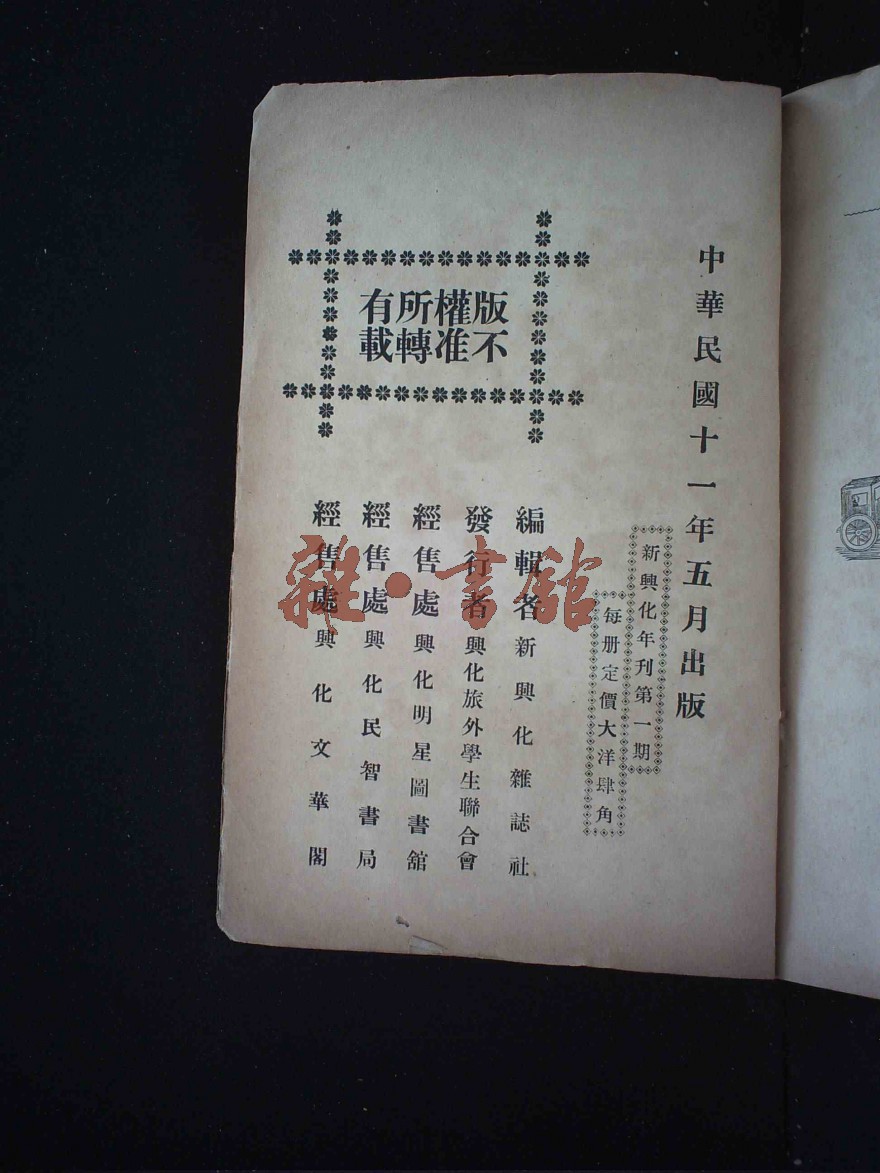 中華民國十一年五月出版
新興化年刊第一期
每册定價大洋肆角
版權所有
不准轉載
編輯者新興化雜誌社
發行者興化旅外學生聯合會
經售處興化明星圖書舘
經售處興化民智書局
經售處興化文華閣
雜·書舘